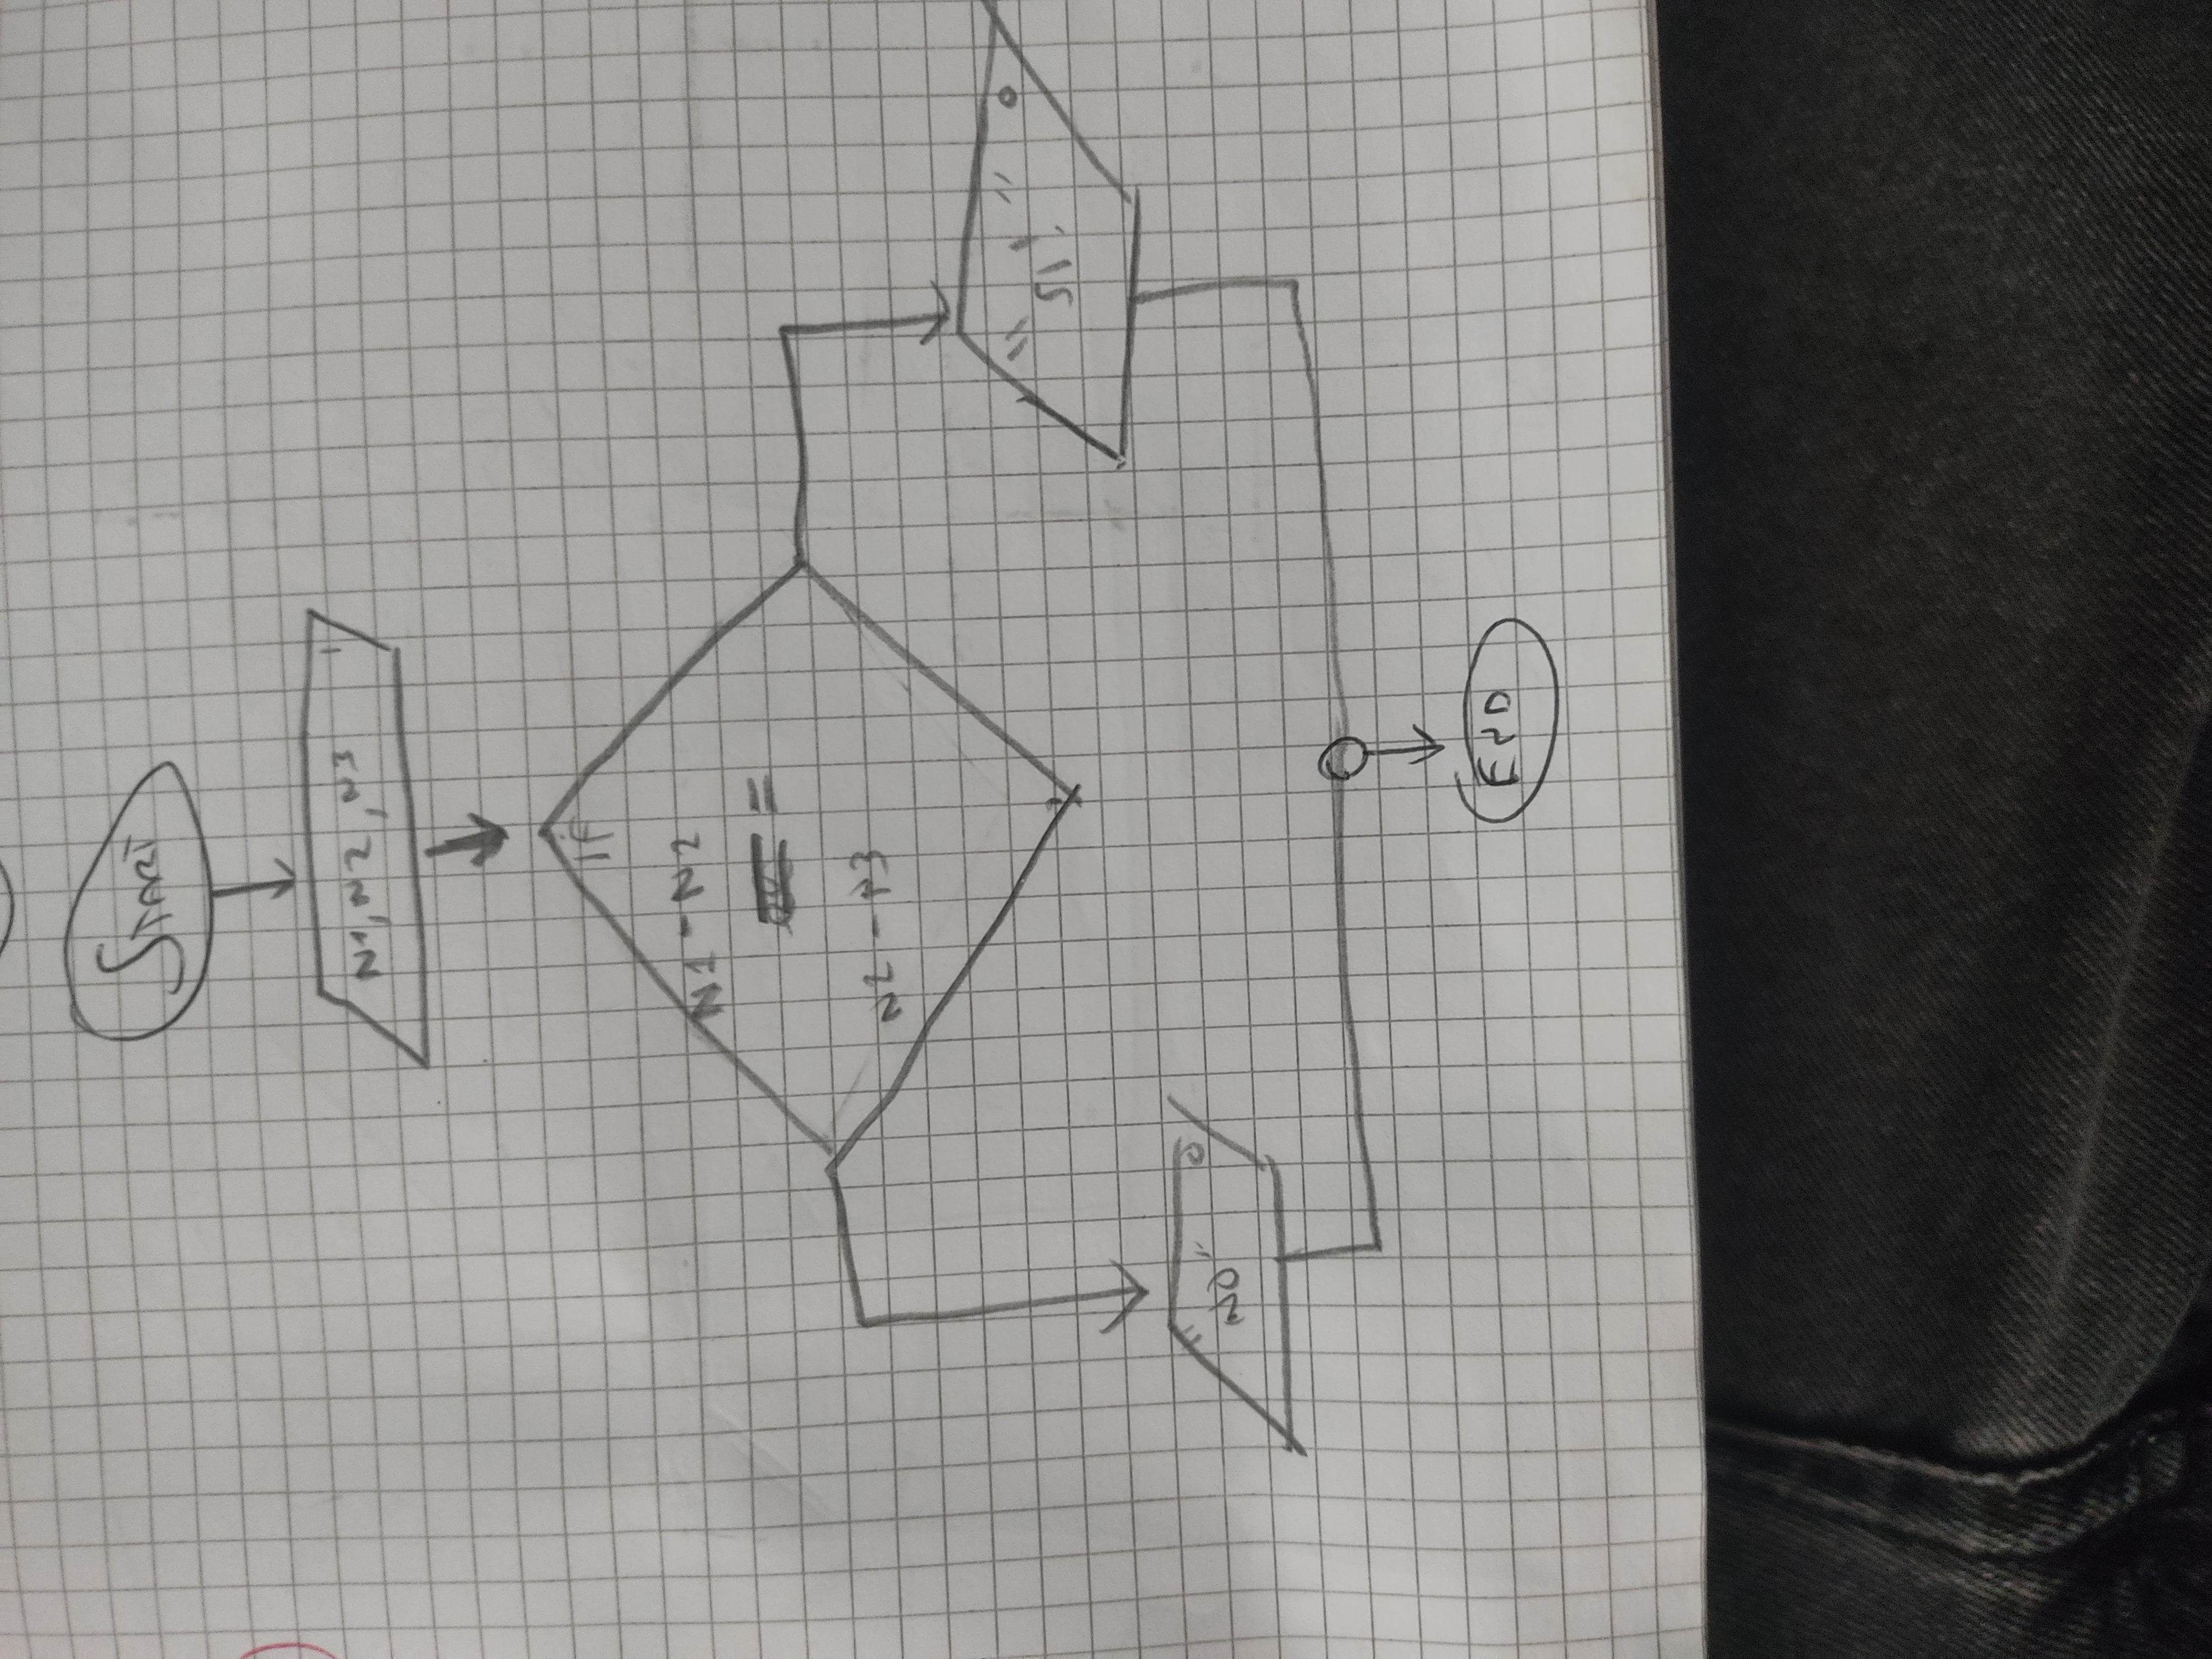 START
N1, N2, N3
I
IF
N1-N2
=
N2-N3
O
"SI"
O
"NO"
END